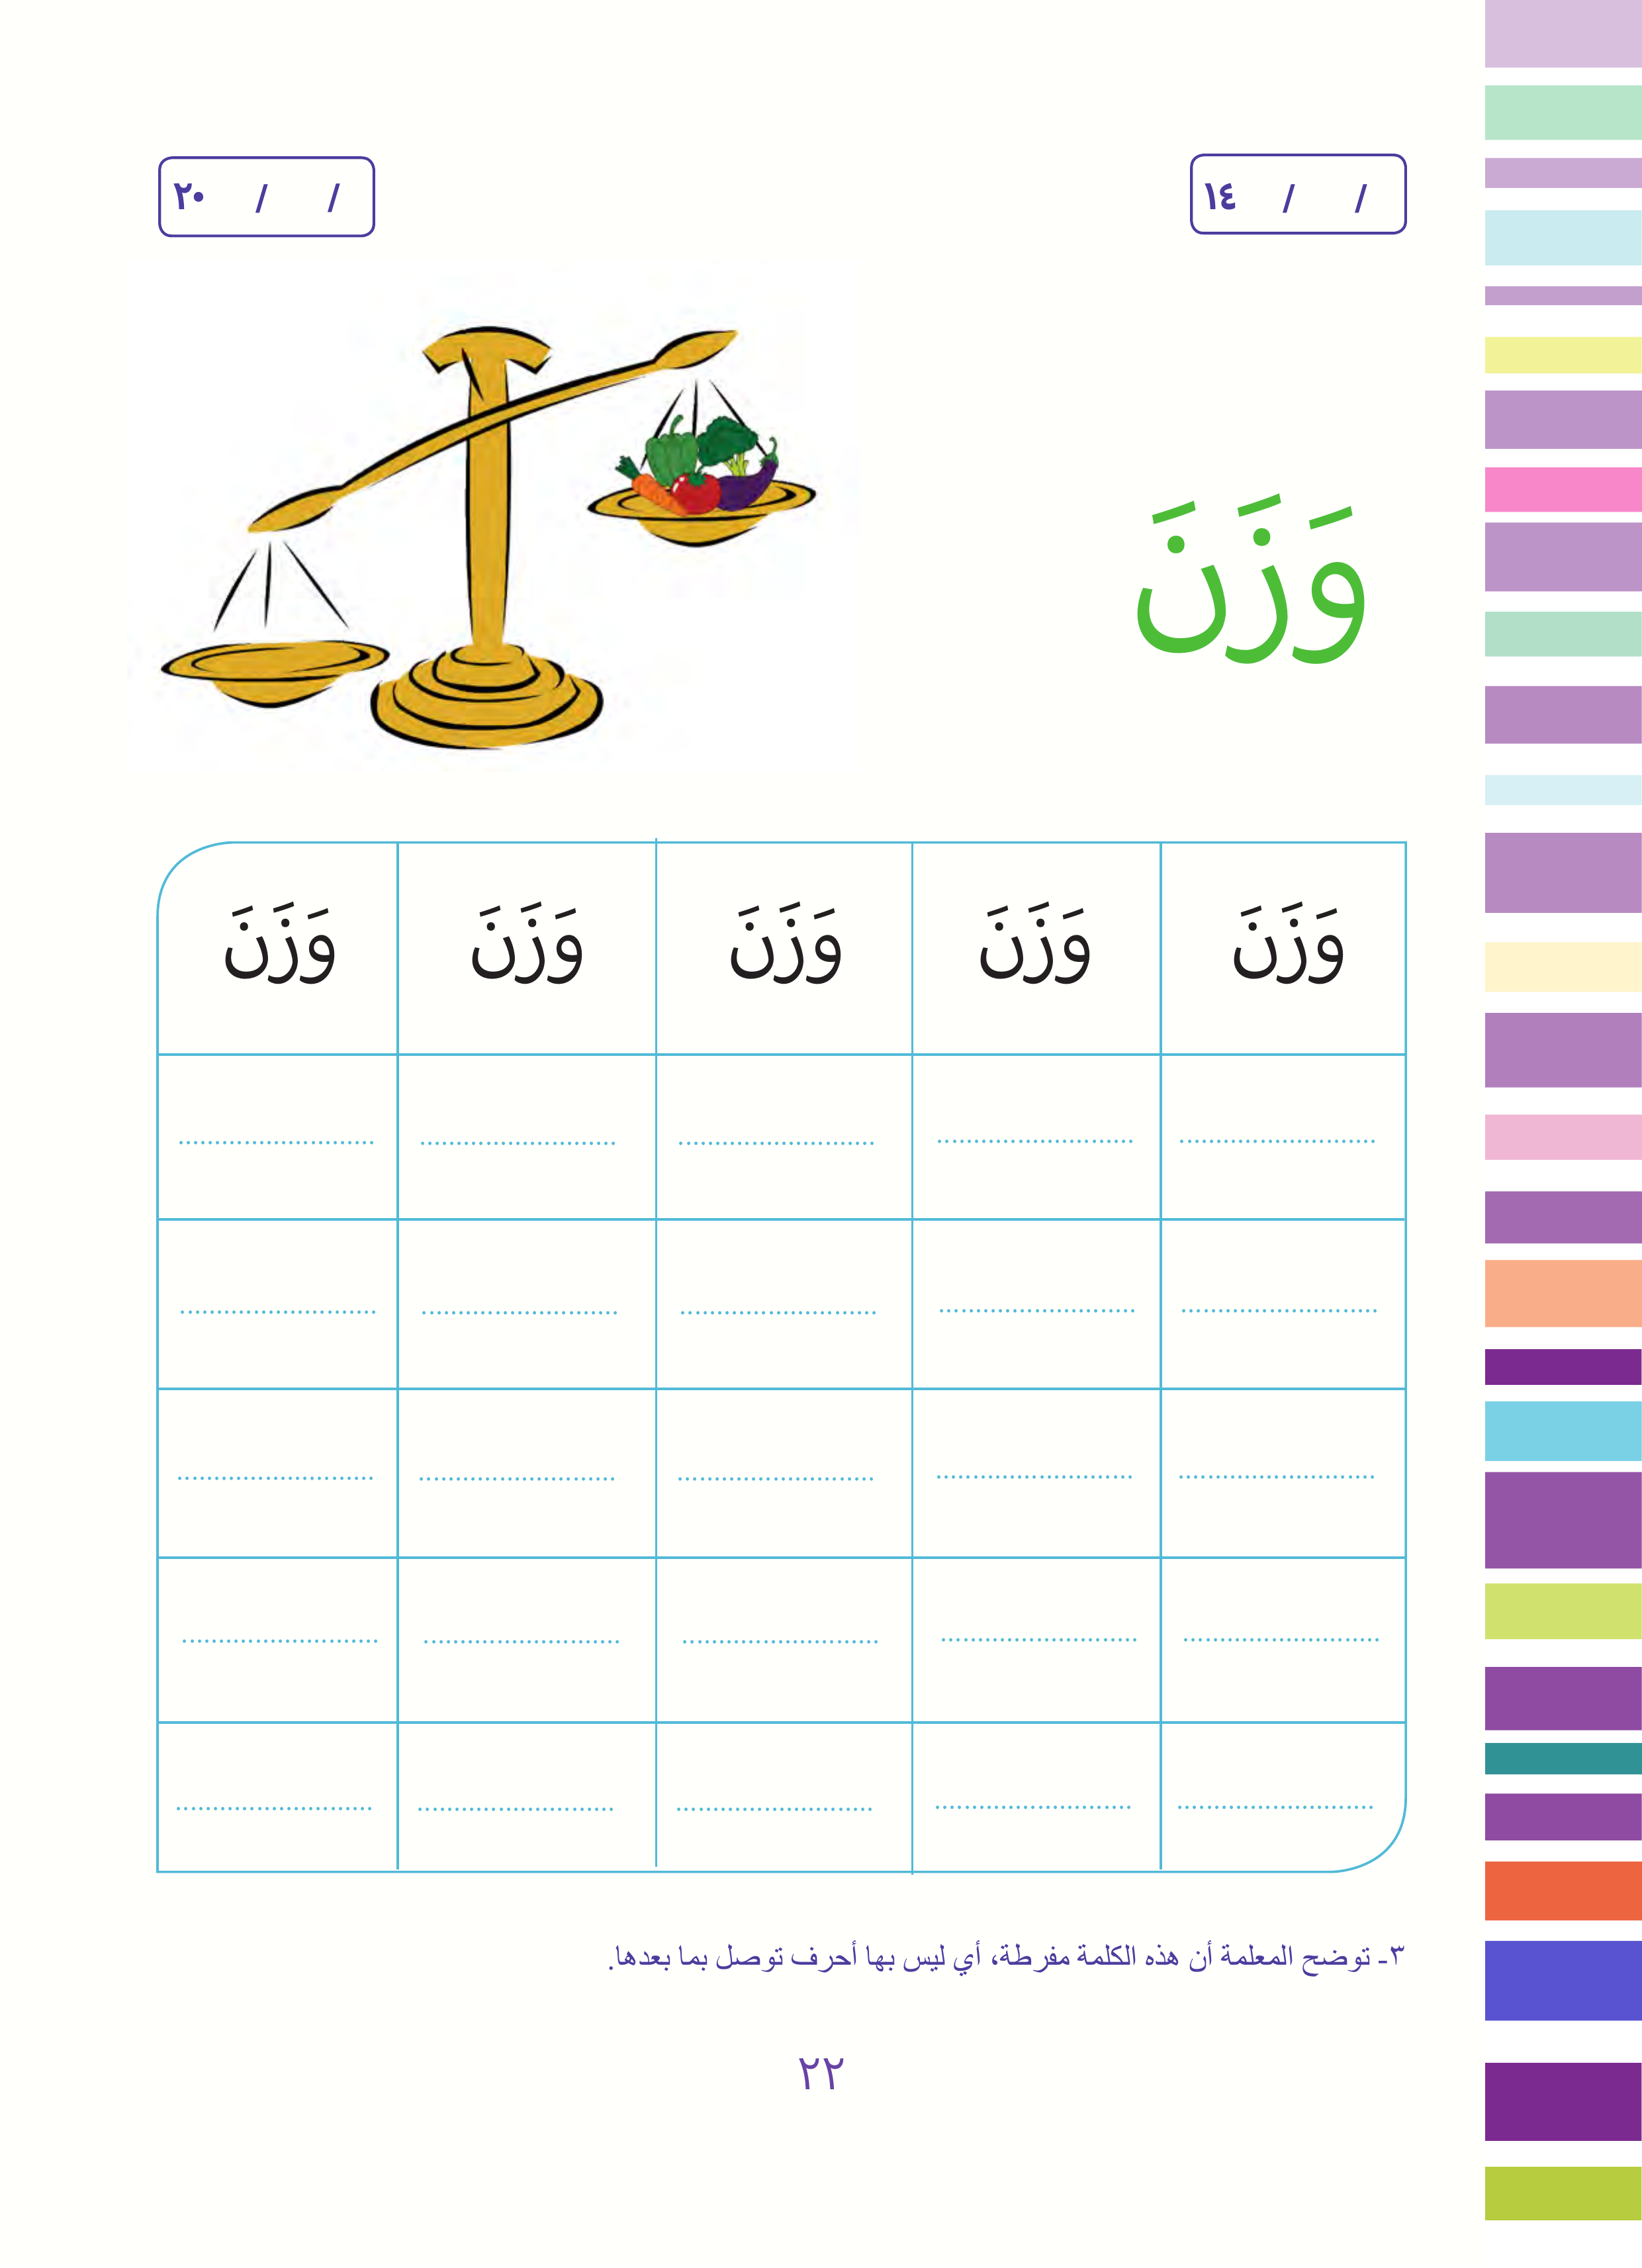 ١٤ / /
٢٠ / /
وَزَنَ
وَزَنَ وَزَنَ وَزَنَ وَزَنَ وَزَنَ
٣- توضح المعلمة أن هذه الكلمة مفرطة، أي ليس بها أحرف توصل بما بعدها.
٢٢